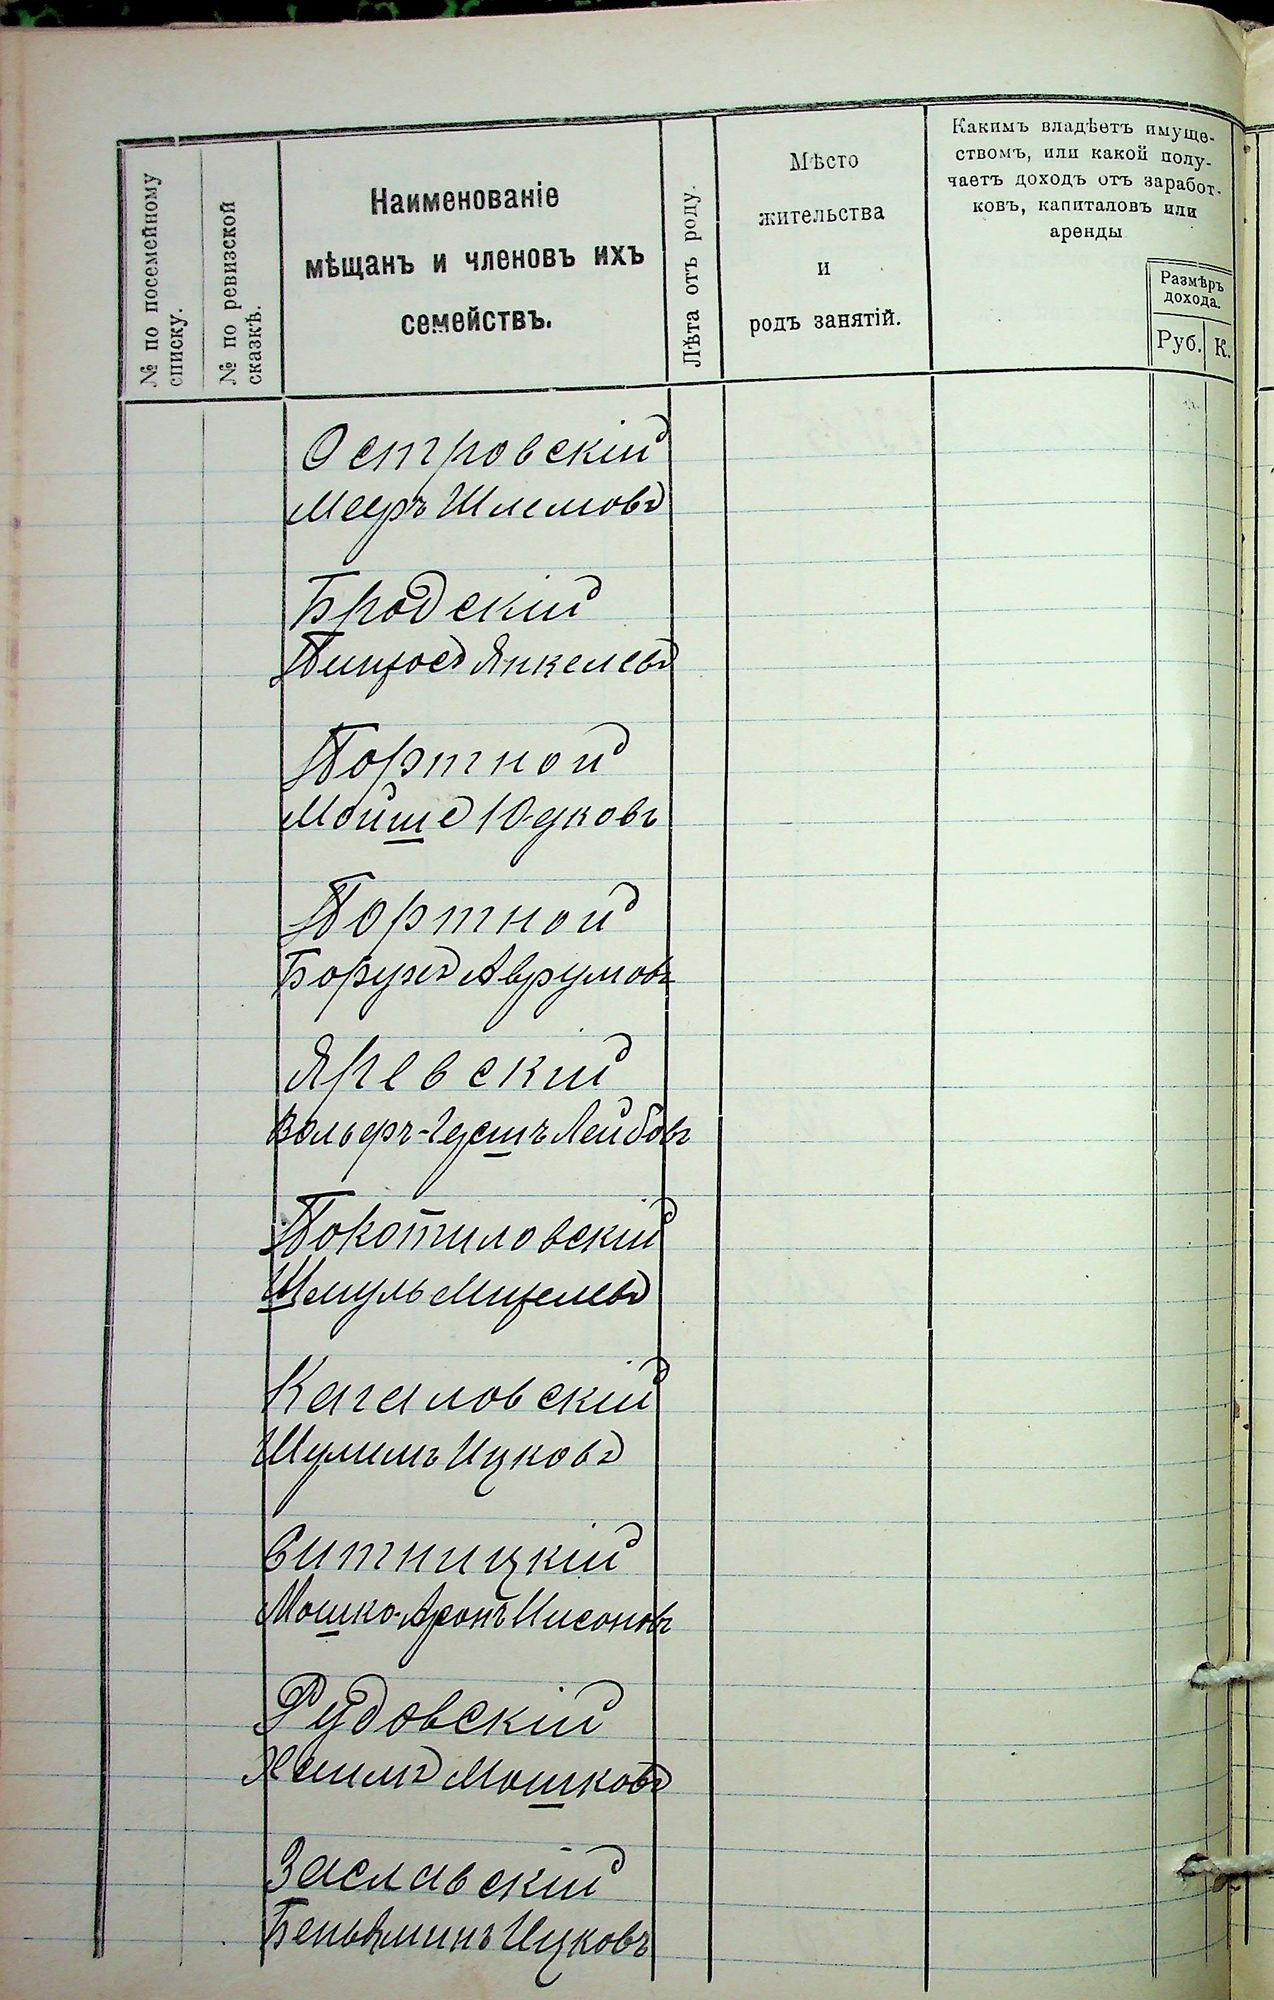 № по посемейному
списку.
№ по ревизской
сказкѣ.
Наименованіе
мѣщанъ и членовъ ихъ
семействъ.
Лѣта отъ роду.
Мѣсто
жительства
и
родъ занятій.
Какимъ владѣетъ имуще-
ствомъ, или какой полу-
чаетъ доходъ отъ заработ-
ковъ, капиталовъ или
аренды
Размѣръ
дохода.
Руб. К.
Островскій
Мееръ Шлемовъ
Бродскій
Пинхосъ Янкелевъ
Портной
Мойше Юдковъ
Портной
Борухъ Аврумовъ
Яревскій
Вольфъ-Гершъ Лейбовъ
Покотиловскій
Шмуль Михелевъ
Кагаловскій
Шулимъ Ицковъ
Ситницкій
Мошко-Аронъ Нисоновъ
Рудовскій
Хаимъ Мошковъ
Заславскій
Беньяминъ Ицковъ